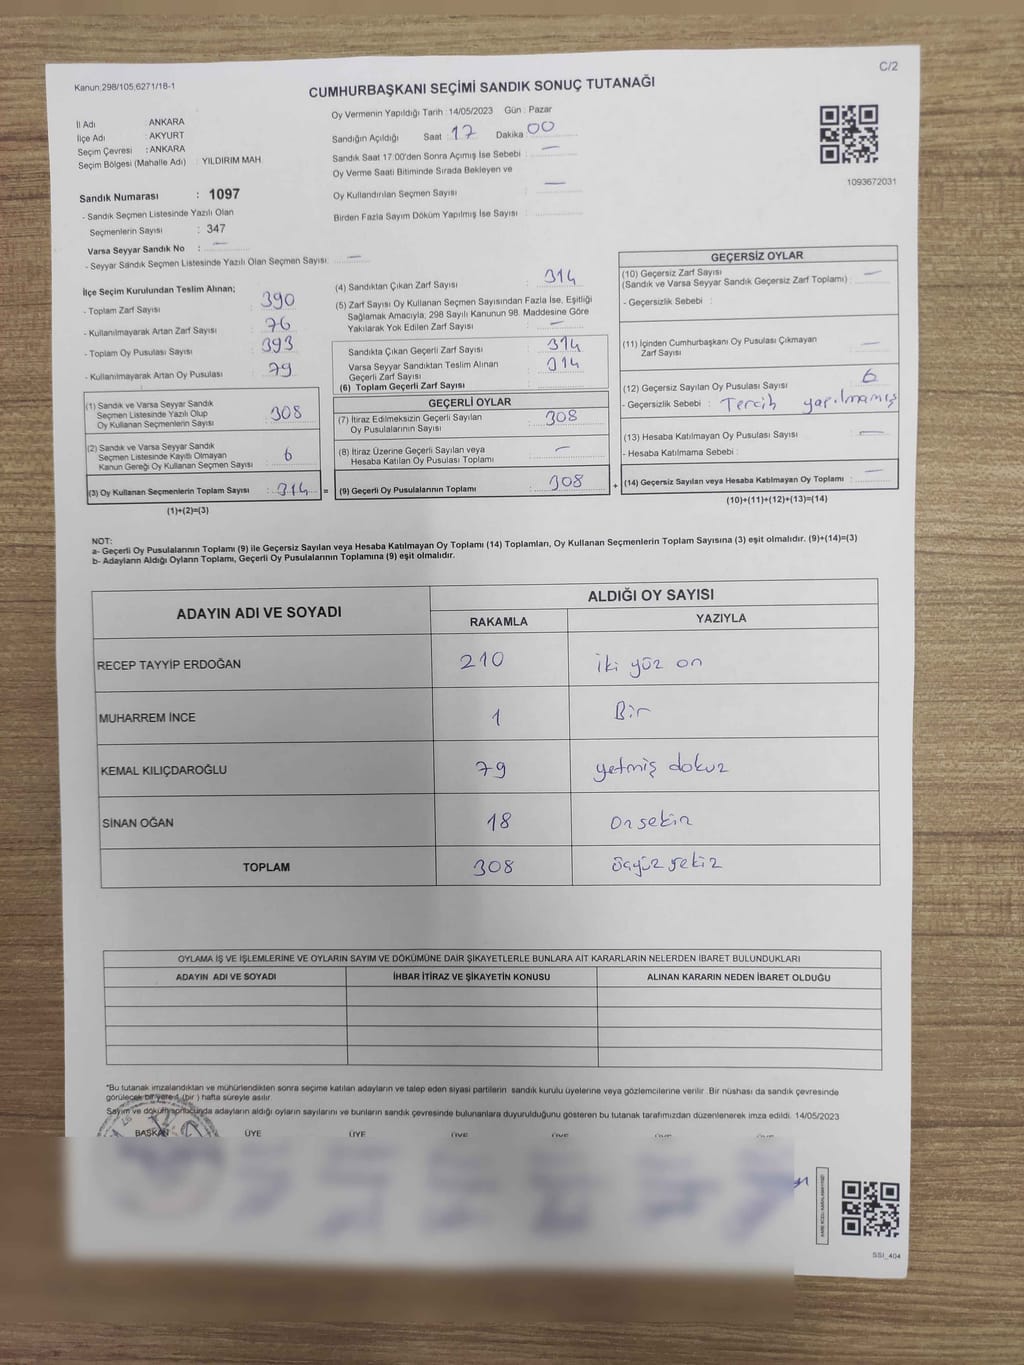 C/2
Kanun;298/105,6271/18-1
CUMHURBAŞKANI SEÇİMİ SANDIK SONUÇ TUTANAĞI
İl Adı : ANKARA
İlçe Adı : AKYURT
Seçim Çevresi : ANKARA
Seçim Bölgesi (Mahalle Adı) : YILDIRIM MAH.
Oy Vermenin Yapıldığı Tarih : 14/05/2023 Gün : Pazar
Sandığın Açıldığı Saat : 17 Dakika : 00
Sandık Saat 17:00'den Sonra Açımış İse Sebebi : —
Oy Verme Saati Bitiminde Sırada Bekleyen ve
Oy Kullandırılan Seçmen Sayısı : —
Birden Fazla Sayım Döküm Yapılmış İse Sayısı :
1093672031
Sandık Numarası : 1097
- Sandık Seçmen Listesinde Yazılı Olan
Seçmenlerin Sayısı : 347
Varsa Seyyar Sandık No : —
- Seyyar Sandık Seçmen Listesinde Yazılı Olan Seçmen Sayısı: —
İlçe Seçim Kurulundan Teslim Alınan;
- Toplam Zarf Sayısı : 390
- Kullanılmayarak Artan Zarf Sayısı : 76
- Toplam Oy Pusulası Sayısı : 393
- Kullanılmayarak Artan Oy Pusulası : 79
(1) Sandık ve Varsa Seyyar Sandık
Seçmen Listesinde Yazılı Olup
Oy Kullanan Seçmenlerin Sayısı : 308
(2) Sandık ve Varsa Seyyar Sandık
Seçmen Listesinde Kayıtlı Olmayan
Kanun Gereği Oy Kullanan Seçmen Sayısı : 6
(3) Oy Kullanan Seçmenlerin Toplam Sayısı : 314 =
(1)+(2)=(3)
(4) Sandıktan Çıkan Zarf Sayısı : 314
(5) Zarf Sayısı Oy Kullanan Seçmen Sayısından Fazla İse, Eşitliği
Sağlamak Amacıyla, 298 Sayılı Kanunun 98. Maddesine Göre
Yakılarak Yok Edilen Zarf Sayısı : —
Sandıkta Çıkan Geçerli Zarf Sayısı : 314
Varsa Seyyar Sandıktan Teslim Alınan
Geçerli Zarf Sayısı : 314
(6) Toplam Geçerli Zarf Sayısı :
GEÇERLİ OYLAR
(7) İtiraz Edilmeksizin Geçerli Sayılan
Oy Pusulalarının Sayısı : 308
(8) İtiraz Üzerine Geçerli Sayılan veya
Hesaba Katılan Oy Pusulası Toplamı : —
(9) Geçerli Oy Pusulalarının Toplamı : 308 +
GEÇERSİZ OYLAR
(10) Geçersiz Zarf Sayısı
(Sandık ve Varsa Seyyar Sandık Geçersiz Zarf Toplamı) : —
- Geçersizlik Sebebi :
(11) İçinden Cumhurbaşkanı Oy Pusulası Çıkmayan
Zarf Sayısı : —
(12) Geçersiz Sayılan Oy Pusulası Sayısı : 6
- Geçersizlik Sebebi : Tercih yapılmamış
(13) Hesaba Katılmayan Oy Pusulası Sayısı : —
- Hesaba Katılmama Sebebi :
(14) Geçersiz Sayılan veya Hesaba Katılmayan Oy Toplamı : —
(10)+(11)+(12)+(13)=(14)
NOT:
a- Geçerli Oy Pusulalarının Toplamı (9) ile Geçersiz Sayılan veya Hesaba Katılmayan Oy Toplamı (14) Toplamları, Oy Kullanan Seçmenlerin Toplam Sayısına (3) eşit olmalıdır. (9)+(14)=(3)
b- Adayların Aldığı Oyların Toplamı, Geçerli Oy Pusulalarının Toplamına (9) eşit olmalıdır.
ADAYIN ADI VE SOYADI
ALDIĞI OY SAYISI
RAKAMLA YAZIYLA
RECEP TAYYİP ERDOĞAN 210 iki yüz on
MUHARREM İNCE 1 Bir
KEMAL KILIÇDAROĞLU 79 yetmiş dokuz
SİNAN OĞAN 18 onsekiz
TOPLAM 308 üçyüz sekiz
OYLAMA İŞ VE İŞLEMLERİNE VE OYLARIN SAYIM VE DÖKÜMÜNE DAİR ŞİKAYETLERLE BUNLARA AİT KARARLARIN NELERDEN İBARET BULUNDUKLARI
ADAYIN ADI VE SOYADI İHBAR İTİRAZ VE ŞİKAYETİN KONUSU ALINAN KARARIN NEDEN İBARET OLDUĞU
*Bu tutanak imzalandıktan ve mühürlendikten sonra seçime katılan adayların ve talep eden siyasi partilerin sandık kurulu üyelerine veya gözlemcilerine verilir. Bir nüshası da sandık çevresinde
görülecek bir yere 1 (bir ) hafta süreyle asılır.
Sayım ve döküm sonucunda adayların aldığı oyların sayılarını ve bunların sandık çevresinde bulunanlara duyurulduğunu gösteren bu tutanak tarafımızdan düzenlenerek imza edildi. 14/05/2023
BAŞKAN ÜYE ÜYE ÜYE ÜYE ÜYE ÜYE
SSI_404